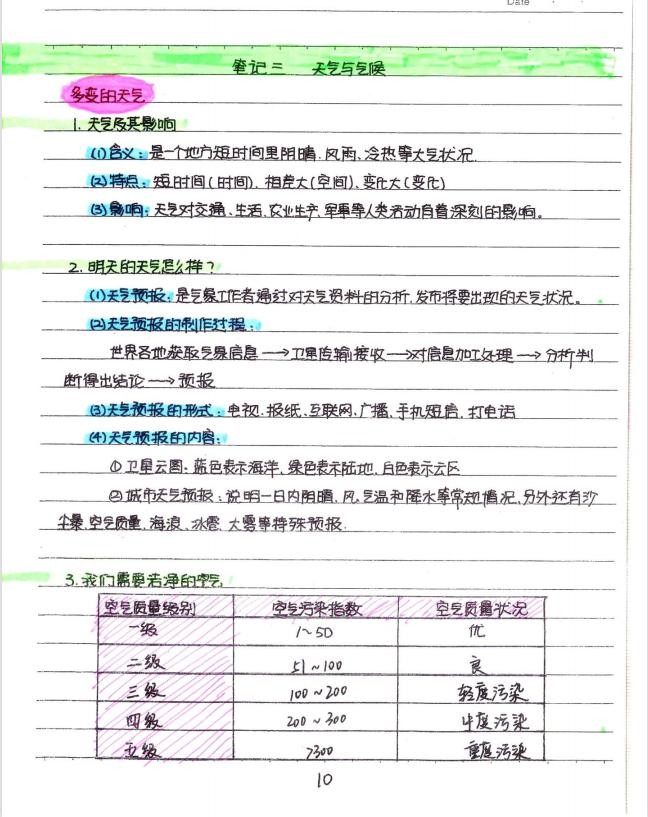 Date
笔记三 天气与气候
多变的天气
1. 天气及其影响
(1)含义:是一个地方短时间里阴晴、风雨、冷热等大气状况.
(2)特点:短时间(时间)、相差大(空间)、变化大(变化)
(3)影响:天气对交通、生活、农业生产、军事等人类活动有着深刻的影响。
2. 明天的天气怎么样?
(1)天气预报:是气象工作者通过对天气资料的分析,发布将要出现的天气状况。
(2)天气预报的制作过程:
世界各地获取气象信息→卫星传输接收→对信息加工处理→分析判
断得出结论→预报
(3)天气预报的形式:电视、报纸、互联网、广播、手机短信、打电话
(4)天气预报的内容:
①卫星云图:蓝色表示海洋,绿色表示陆地,白色表示云区
②城市天气预报:说明一日内阴晴、风、气温和降水等常规情况,另外还有沙
尘暴、空气质量、海浪、冰雹、大雾等特殊预报.
3. 我们需要洁净的空气
空气质量级别 空气污染指数 空气质量状况
一级 1~50 优
二级 51~100 良
三级 100~200 轻度污染
四级 200~300 中度污染
五级 >300 重度污染
10